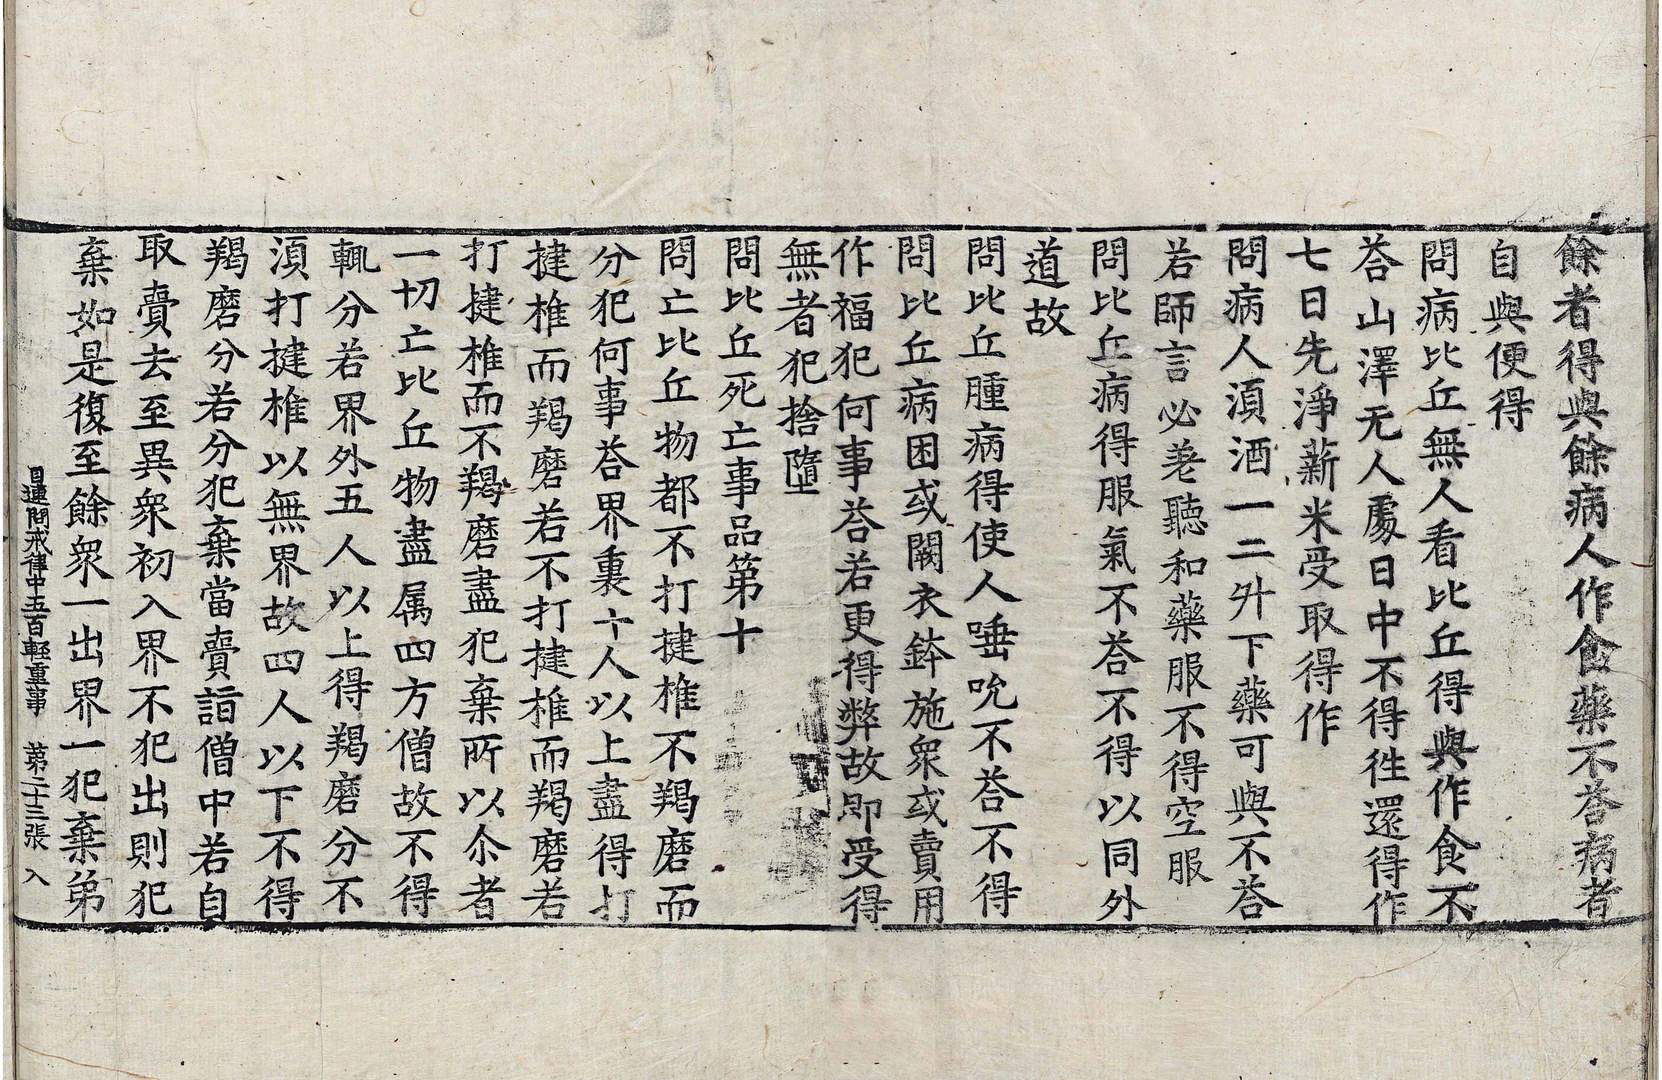 餘者得與餘病人作食藥不荅病者
自與便得
問病比丘無人看比丘得與作食不
荅山澤无人處日中不得徃還得作
七日先淨薪米受取得作
問病人湏酒一二升下藥可與不荅
若師言必差聽和藥服不得空服
問比丘病得服氣不荅不得以同外
道故
問比丘腫病得使人唾吮不荅不得
問比丘病困或闕衣鉢施衆或賣用
作福犯何事荅若更得弊故即受得
無者犯捨墮
問比丘死亡事品第十
問亡比丘物都不打揵椎不羯磨而
分犯何事荅界裏十人以上盡得打
揵椎而羯磨若不打揵椎而羯磨若
打揵椎而不羯磨盡犯棄所以尒者
一切亡比丘物盡属四方僧故不得
輒分若界外五人以上得羯磨分不
湏打揵椎以無界故四人以下不得
羯磨分若分犯棄當賣詣僧中若自
取賣去至異衆初入界不犯出則犯
棄如是復至餘衆一出界一犯棄弟
目連問戒律中五百輕重事 苐二十三張 入